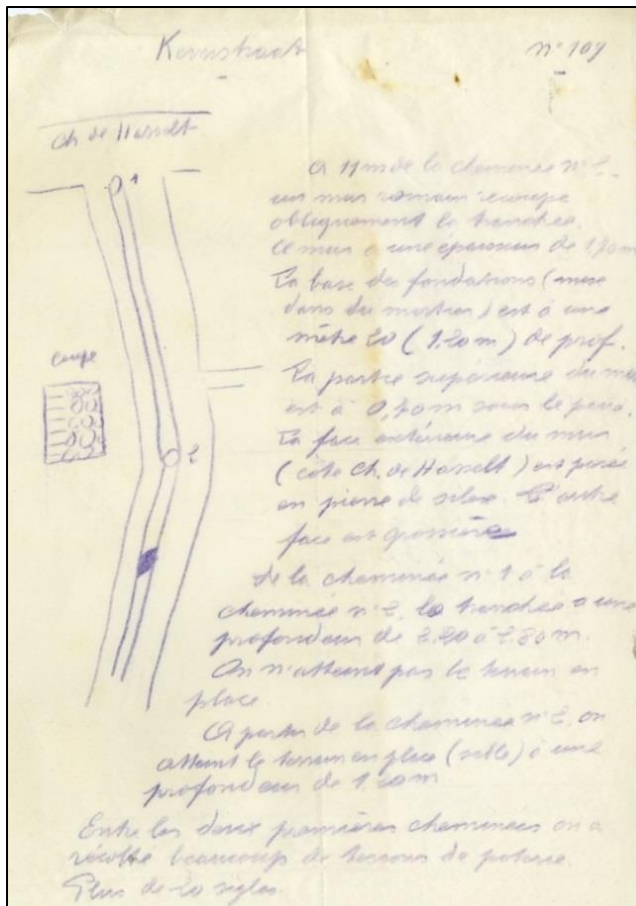 n° 109
Ch de Hasselt
1
A 11m de la cheminée n° 2
un mur romain recoupe
obliquement la tranchée.
Ce mur a une épaisseur de
coupe
La base des fondations (
dans du mortier) est à une
mètre 20 (1,20m) de prof.
La partie supérieure du mur
est à sous le pavé.
La face extérieure du mur
2
(côté Ch. de Hasselt) est
en pierre de silex. L'autre
face est grossière
De la cheminée n° 1 à la
cheminée n° 2, la tranchée a une
profondeur de 2.20 à 2.80 m.
On n'atteint pas le terrain en
place
A partir de la cheminée n° 2, on
atteint le terrain en place (sable) à une
profondeur de 1.20m
Entre les deux premières cheminées on a
récolté beaucoup de tessons de poterie.
Plus de 20 sigles.